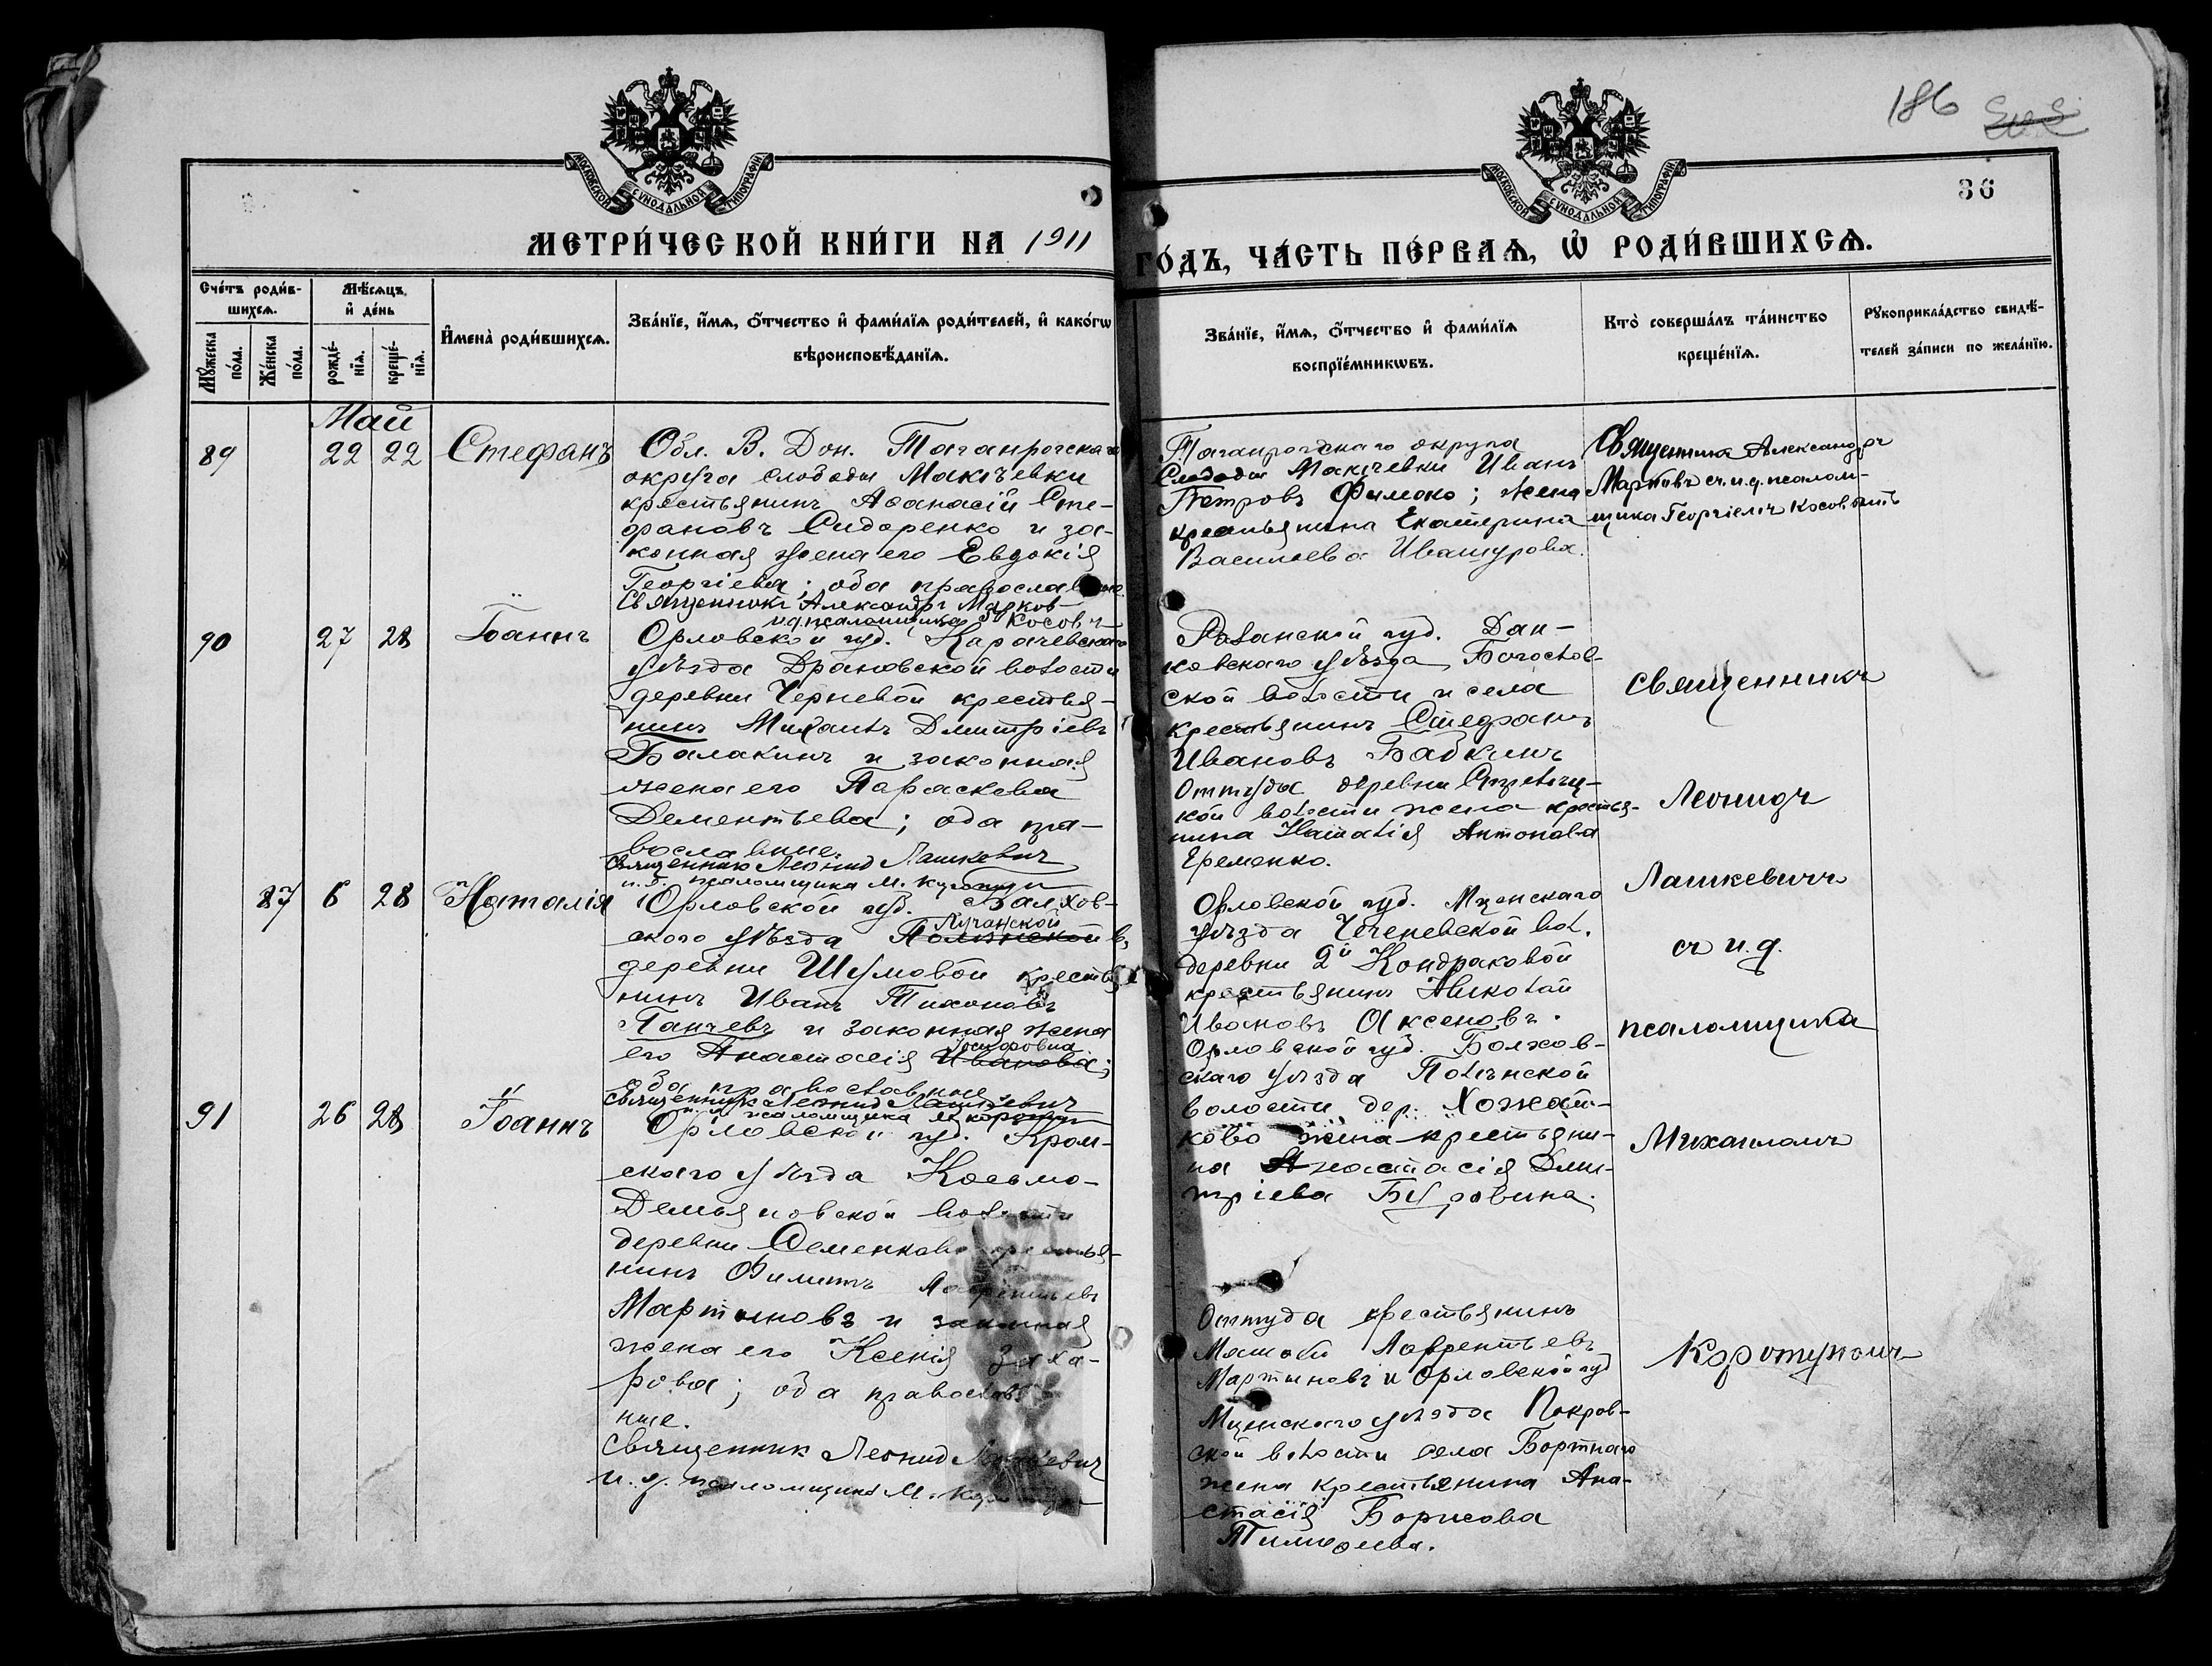 186
36
МОСКОВСКОЙ СѴНОДАЛЬНОЙ ТИПОГРАФІИ
МОСКОВСКОЙ СѴНОДАЛЬНОЙ ТИПОГРАФІИ
МЕТРИ́ЧЕСКОЙ КНИ́ГИ НА 1911
ГО́ДЪ, ЧА́СТЬ ПЕ́РВАѦ, Ѡ҆ РОДИ́ВШИХСѦ.
Сче́тъ роди́в-
шихсѧ.
Мꙋ́жеска по́ла.
Же́нска по́ла.
Мѣ́сѧцъ
и҆ де́нь
рожде́-
нїѧ.
креще́-
нїѧ.
И҆мена̀ роди́вшихсѧ.
Зва́нїе, и҆́мѧ, ѻ҆́тчество и҆ фами́лїѧ роди́телей, и҆ како́гѡ
вѣроисповѣ́данїѧ.
Зва́нїе, и҆́мѧ, ѻ҆́тчество и҆ фами́лїѧ
воспрїе́мникѡвъ.
Кто̀ соверша́лъ та́инство
креще́нїѧ.
Рꙋкоприкла́дство свидѣ́-
телей за́писи по жела́нїю.
Май
89 22 22 Стефанъ
Обл. В. Дон. Таганрогскаго
округа слободы Макѣевки
крестьянинъ Аѳанасій Сте-
фановъ Сидоренко и за-
конная жена его Евдокія
Георгіева; оба православные.
Священникъ Александръ Марков
и.д. псаломщика Г Косовъ
Таганрогскаго округа
Слободы Макѣевки Иванъ
Петровъ Фименко; жена
крестьянина Екатерина
Васильева Ивашурова.
Священникъ Александръ
Марковъ съ и.д. псалом-
щика Георгіемъ Косовымъ
90 27 28 Іоаннъ
Орловской губ. Карачевскаго
уѣзда Драновской волости
деревни Черневой крестья-
нинъ Михаилъ Дмитріевъ
Балакинъ и законная
жена его Параскева
Дементьева; оба пра-
вославные.
Священникъ Леонид Лашкевич
и. д. псаломщика М. Коротун
Рязанской губ. Дан-
ковскаго уѣзда, Богослов-
ской волости и села
крестьянинъ Стефанъ
Ивановъ Бабкинъ
Оттуда деревни
кой волости жена крестья-
нина Наталія Антонова
Еременко.
87 6 28 Наталія
Орловской губ. Балхов-
ского уѣзда Лучанской в.
деревни Шумовой крестья
нинъ Иванъ Тихоновъ
Ганчевъ и законная жена
его Анастасія Іосифовна Иванова;
оба православные
Священникъ Леонид Лашкевич
и. д. псаломщика М. Коротун
Орловской губ. Мценскаго
уѣзда Чегеневской вол.
деревни 2й Кондраковой
крестьянинъ Николай
Ивановъ Аксеновъ.
Орловской губ. Болхов-
скаго уѣзда
волости дер.
ково жена крестьяни-
на Анастасія Дми-
тріева
91 26 28 Іоаннъ
Орловской губ. Кром-
скаго уѣзда Косьмо-
Демьяновской волости
деревни Семенково крестья-
нинъ Филиппъ Лаврентьевъ
Мартыновъ и законная
жена его Ксенія Заха-
рова; оба православ-
ные.
Священник Леонид Лашкевич
и. д. псаломщика М. Коротун
Оттуда крестьянинъ
Лаврентьевъ
Мартыновъ и Орловской губ
Мценскаго уѣзда Покров-
ской волости села Бортнаго
жена крестьянина Ана-
стасія Борисова
Тимофеева.
Священникъ
Леонидъ
Лашкевичъ
съ и.д.
псаломщика
Михаиломъ
Коротуномъ